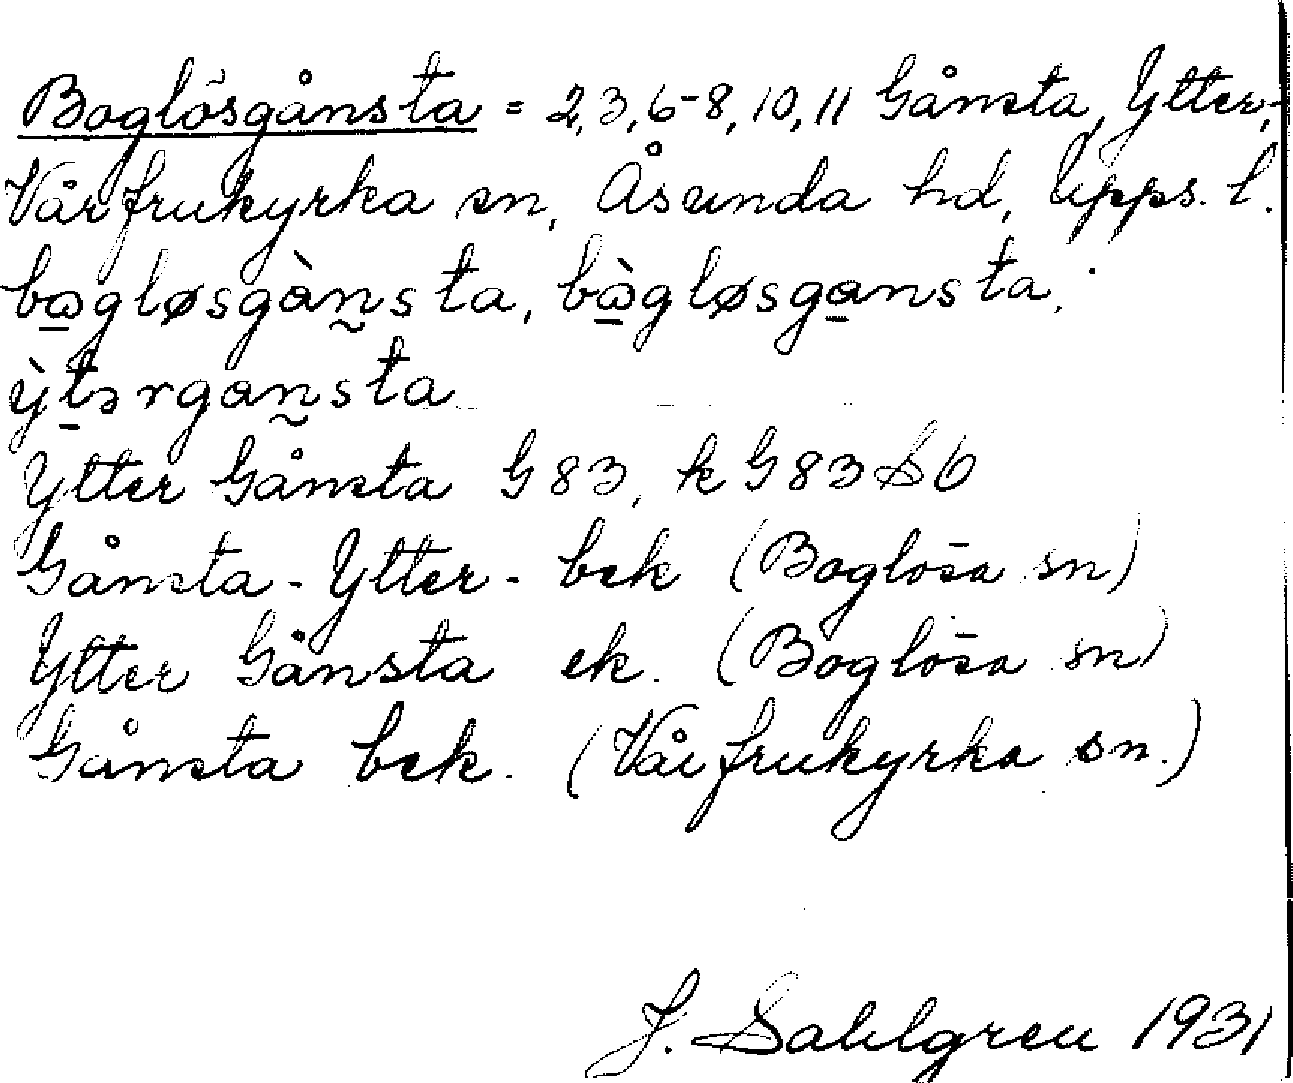 Boglösgånsta = 2,3,6-8,10,11 Gånsta, Ytter-,
Vårfrukyrka sn, Åsunda hd, Upps. l.
bo̲gløsgàn̰sta, bò̲gløsga̲nsta,
ỳt̲ərgan̰sta
Ytter Gånsta G 83, k G 83 S 6
Gånsta - Ytter - bek (Boglösa sn)
Ytter Gånsta ek. (Boglösa sn)
Gånsta bek. (Vårfrukyrka sn.)
J. Sahlgren 1931